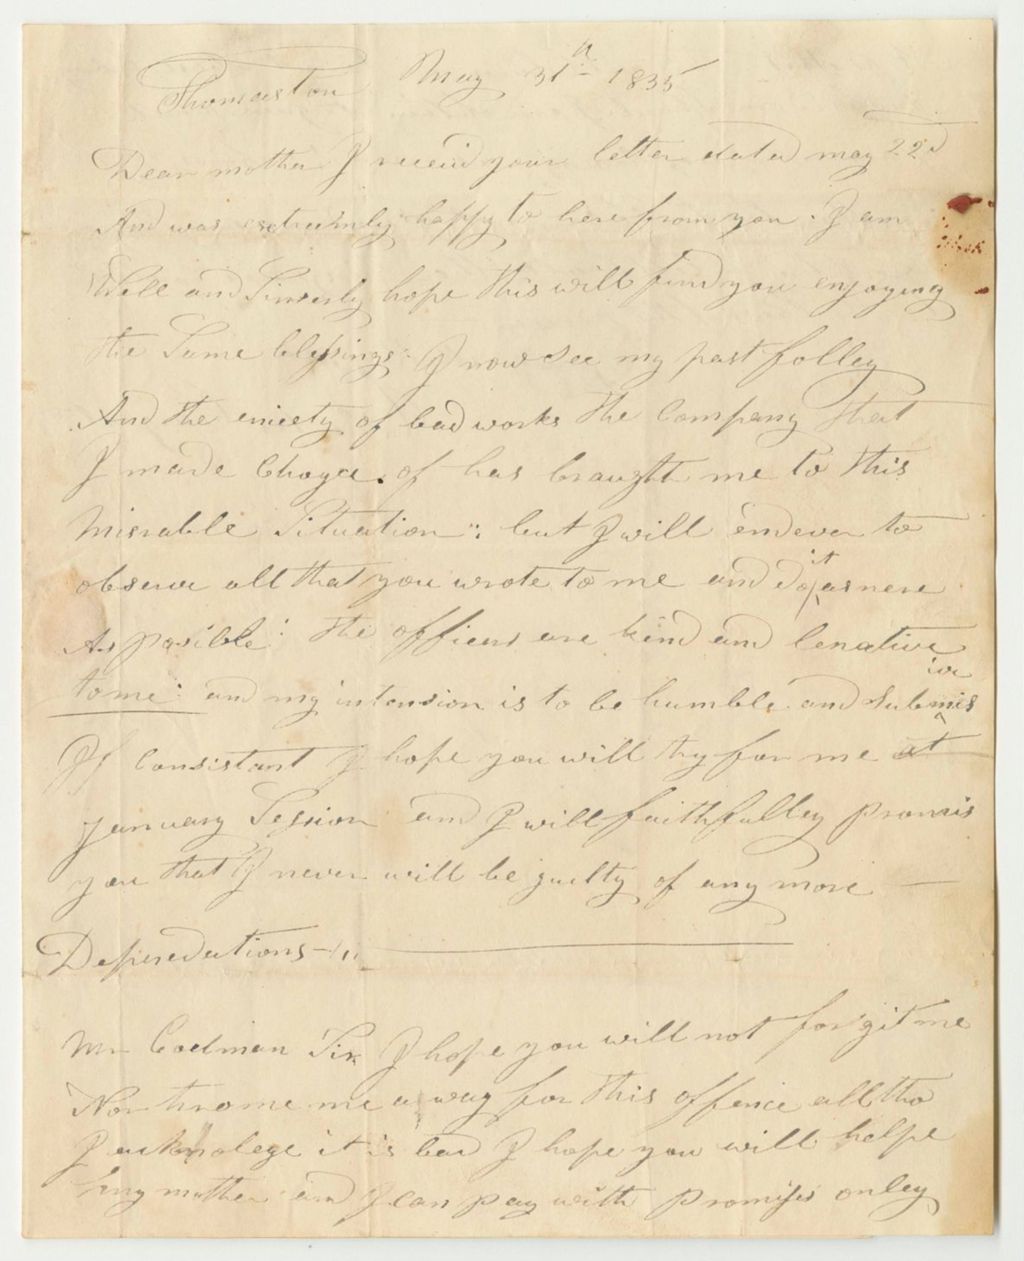 Thomaston May 31st 1835
Dear mother I receivd your letter dated may 22d
And was extreemly happy to here from you. I am
Well and Sinserly hope this will find you enjoying
the Same blessings: I now see my past folley
And the of bad works the Company that
I made Choyce. of has braught me to this
Misrable Situation: but I will endever to
observe all that you wrote to me and do it as nere
As posible: the officers are kind and lenative
to me: and my intension is to be humble and Submisive
If Consistant I hope you will try for me at
January Session and I will faithfulley promis
you that I never will be guilty of any more
Depredations
Mr Codman Sir I hope you will not forgit me
Nor throme me away for this offence alltho
I acknolege it is bad I hope you will helpe
my mother and I can pay with promises onley